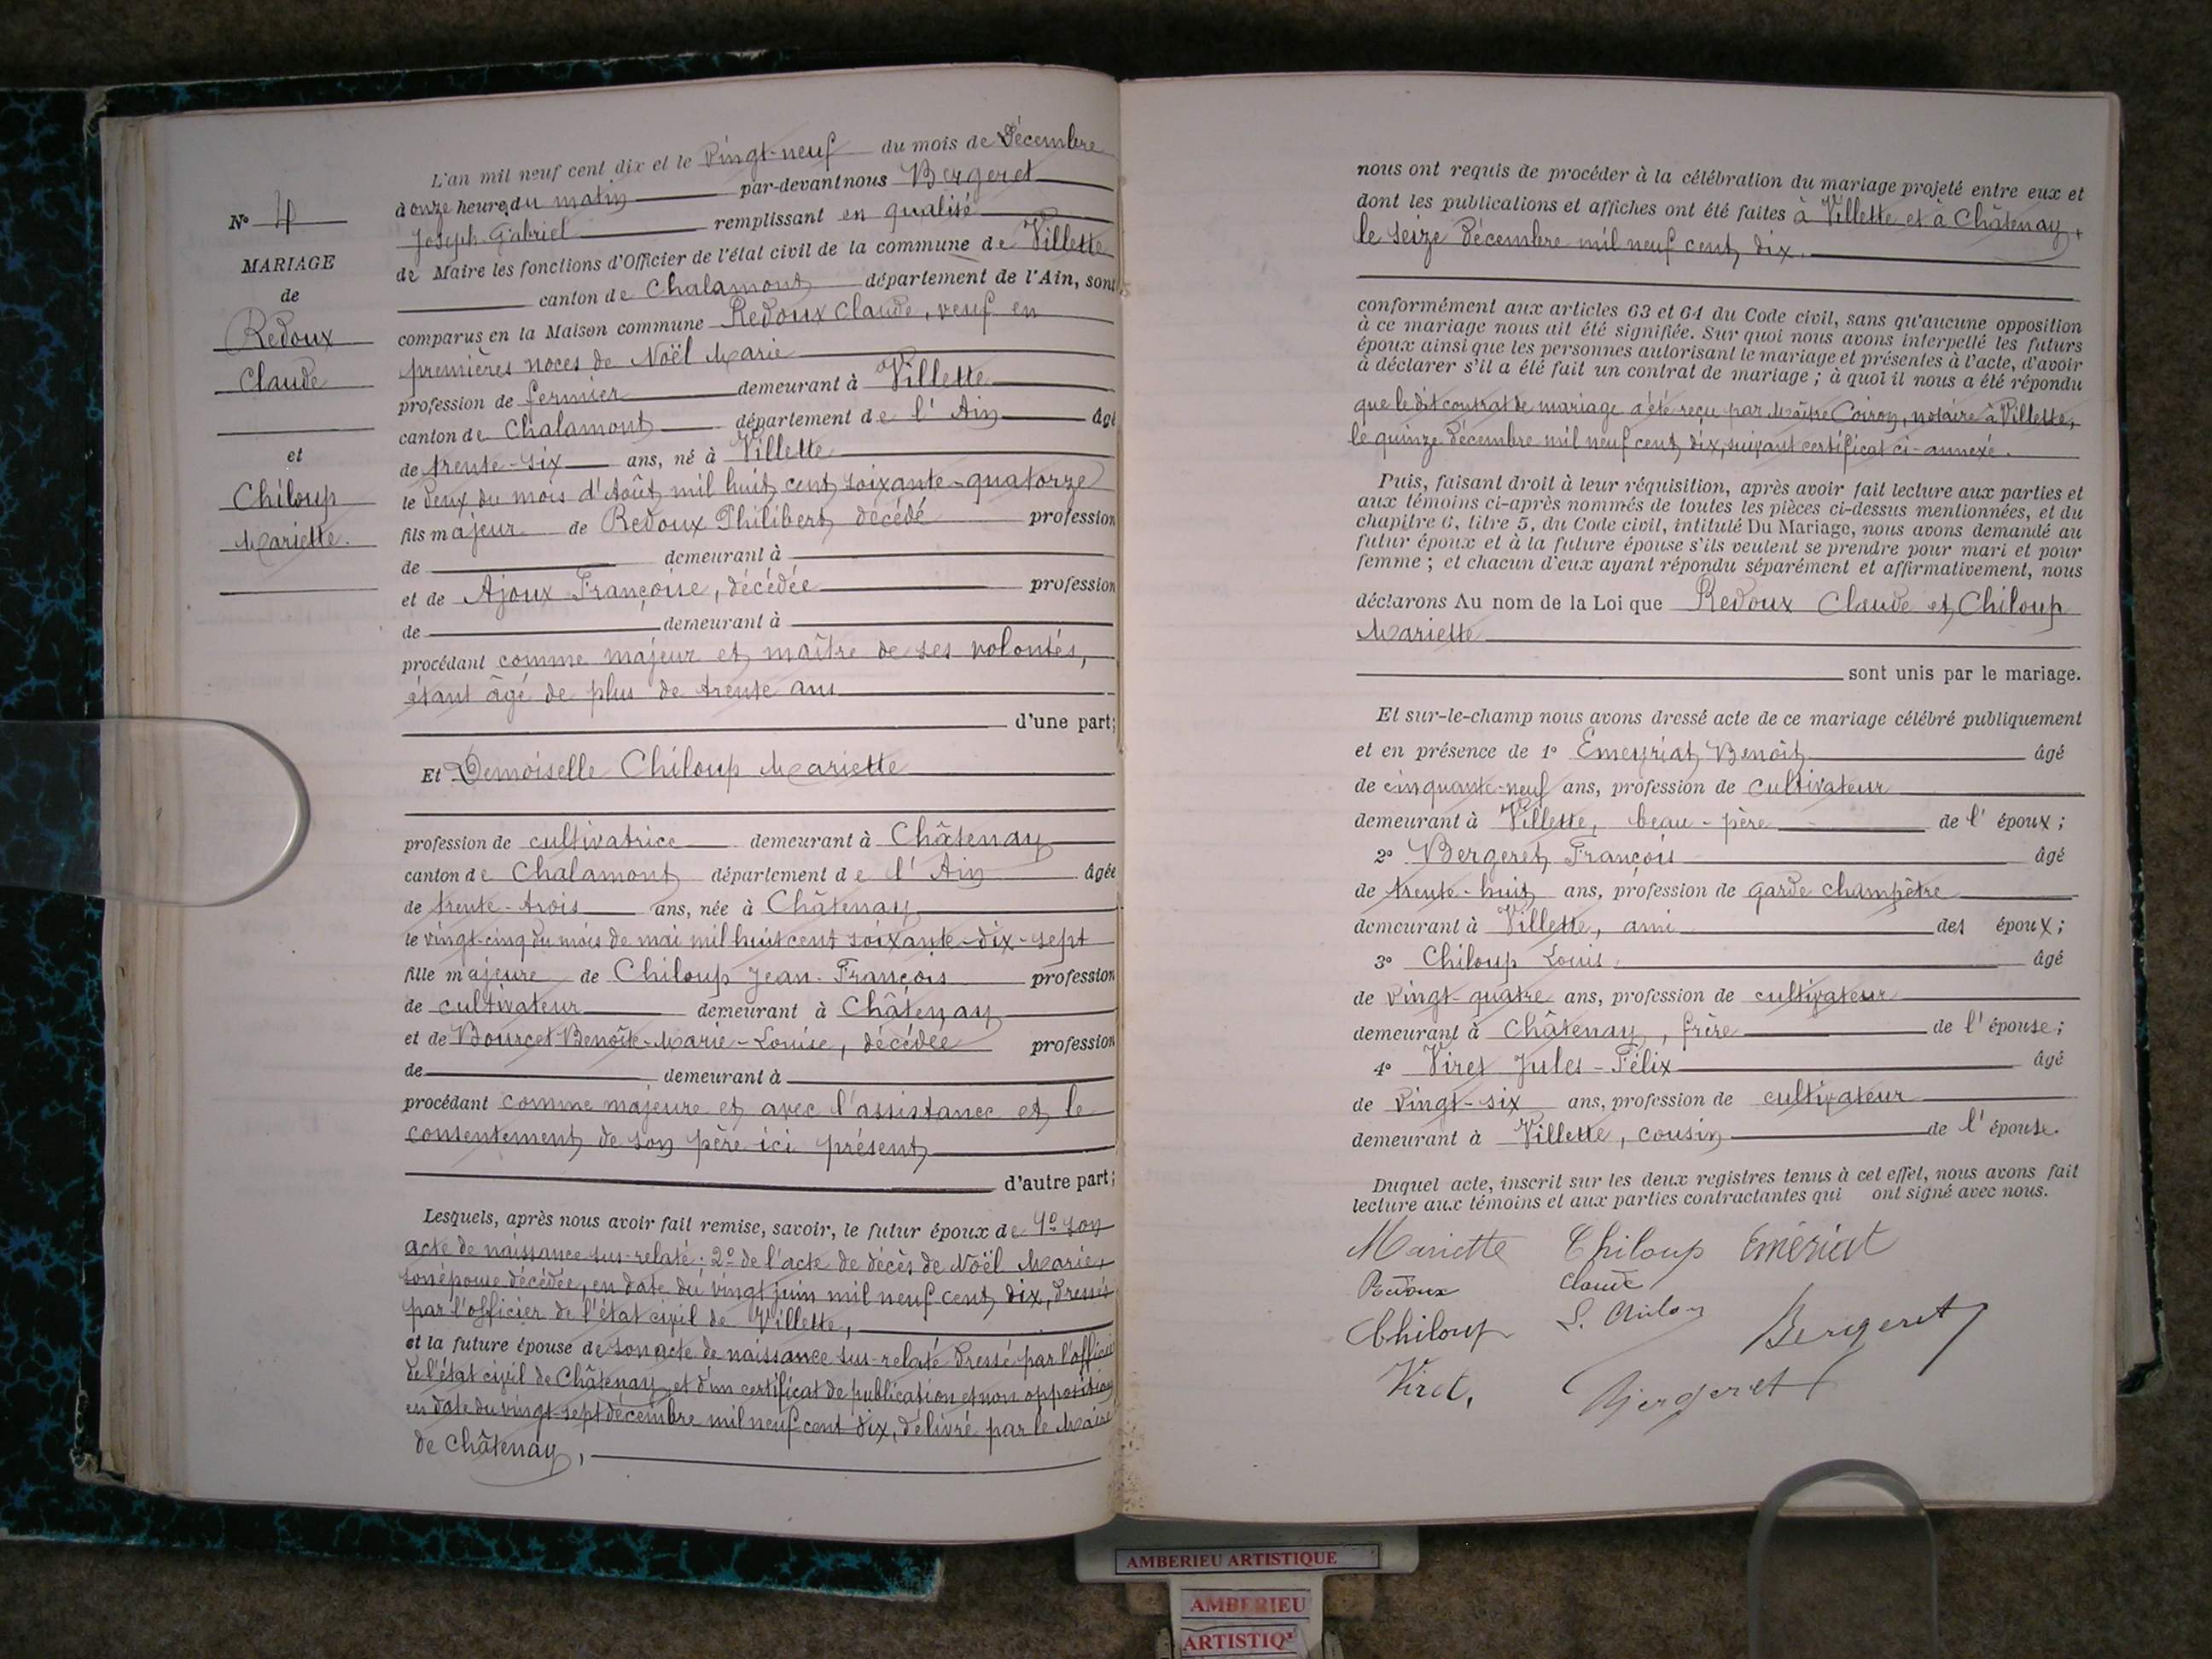 N° 4
MARIAGE
de
Redoux
Claude
et
Chiloup
Mariette.
L'an mil neuf cent dix et le vingt-neuf du mois de Décembre
à onze heures du matin par-devant nous Bergeret
Joseph-Gabriel remplissant en qualité
de Maire les fonctions d'Officier de l'état civil de la commune de Villette
canton de Chalamont département de l'Ain, sont
comparus en la Maison commune Redoux Claude, veuf en
premières noces de Noël Marie
profession de fermier demeurant à Villette
canton de Chalamont département de l'Ain âgé
de trente-six ans, né à Villette
le deux du mois d'Août mil huit cent soixante-quatorze
fils majeur de Redoux Philibert décédé profession
de demeurant à
et de Ajoux Françoise, décédée profession
de demeurant à
procédant comme majeur et maître de ses volontés,
étant âgé de plus de trente ans
d'une part;
Et Demoiselle Chiloup Mariette
profession de cultivatrice demeurant à Châtenay
canton de Chalamont département de l'Ain âgée
de trente-trois ans, née à Châtenay
le vingt-cinq du mois de mai mil huit cent soixante-dix-sept
fille majeure de Chiloup Jean-François profession
de cultivateur demeurant à Châtenay
et de Bourcet Benoîte-Marie-Louise, décédée profession
de demeurant à
procédant comme majeure et avec l'assistance et le
consentement de son père ici présent
d'autre part;
Lesquels, après nous avoir fait remise, savoir, le futur époux de 1° son
acte de naissance sus-relaté; 2° de l'acte de décès de Noël Marie,
son épouse décédée, en date du vingt juin mil neuf cent dix, dressé
par l'officier de l'état civil de Villette,
et la future épouse de son acte de naissance sus-relaté dressé par l'officier
de l'état civil de Châtenay et d'un certificat de publication et non opposition
en date du vingt-sept décembre mil neuf cent dix, délivré par le Maire
de Châtenay,
nous ont requis de procéder à la célébration du mariage projeté entre eux et
dont les publications et affiches ont été faites à Villette et à Châtenay,
le seize Décembre mil neuf cent dix.
conformément aux articles 63 et 64 du Code civil, sans qu'aucune opposition
à ce mariage nous ait été signifiée. Sur quoi nous avons interpellé les futurs
époux ainsi que les personnes autorisant le mariage et présentes à l'acte, d'avoir
à déclarer s'il a été fait un contrat de mariage; à quoi il nous a été répondu
que le dit contrat de mariage a été reçu par Maître Coiron, notaire à Villette,
le quinze Décembre mil neuf cent dix, suivant certificat ci-annexé.
Puis, faisant droit à leur réquisition, après avoir fait lecture aux parties et
aux témoins ci-après nommés de toutes les pièces ci-dessus mentionnées, et du
chapitre 6, titre 5, du Code civil, intitulé Du Mariage, nous avons demandé au
futur époux et à la future épouse s'ils veulent se prendre pour mari et pour
femme; et chacun d'eux ayant répondu séparément et affirmativement, nous
déclarons Au nom de la Loi que Redoux Claude et Chiloup
Mariette
sont unis par le mariage.
Et sur-le-champ nous avons dressé acte de ce mariage célébré publiquement
et en présence de 1° Emeyriat Benoît âgé
de cinquante-neuf ans, profession de cultivateur
demeurant à Villette, beau-père de l'époux;
2° Bergeret François âgé
de trente-huit ans, profession de garde champêtre
demeurant à Villette, ami des époux;
3° Chiloup Louis âgé
de vingt-quatre ans, profession de cultivateur
demeurant à Châtenay, frère de l'épouse;
4° Viret Jules-Félix âgé
de vingt-six ans, profession de cultivateur
demeurant à Villette, cousin de l'épouse.
Duquel acte, inscrit sur les deux registres tenus à cet effet, nous avons fait
lecture aux témoins et aux parties contractantes qui ont signé avec nous.
Mariette Chiloup Emériat
Redoux Claude
Chiloup L. Bergeret
Viret, Bergeret
AMBERIEU ARTISTIQUE
AMBERIEU
ARTISTIQ